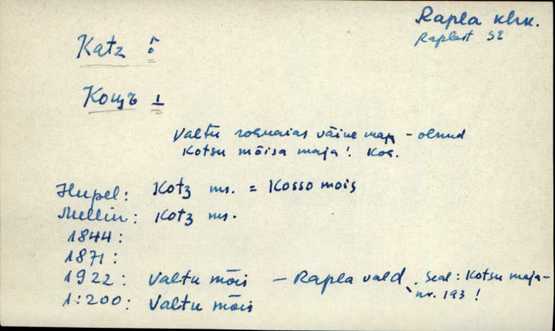 Rapla khk.
Raplast SE
Katz :
Коцъ 1
Valtu rosuaias väike maja - olnud
Kotsu mõisa maja! Kog.
Hupel: Kotz ms. = Kosso mois
Mellin: Kotz ms.
1844:
1871:
1922: Valtu mõis - Rapla vald. Seal: Kotsu maja-
nr. 193!
1:200: Valtu mõis